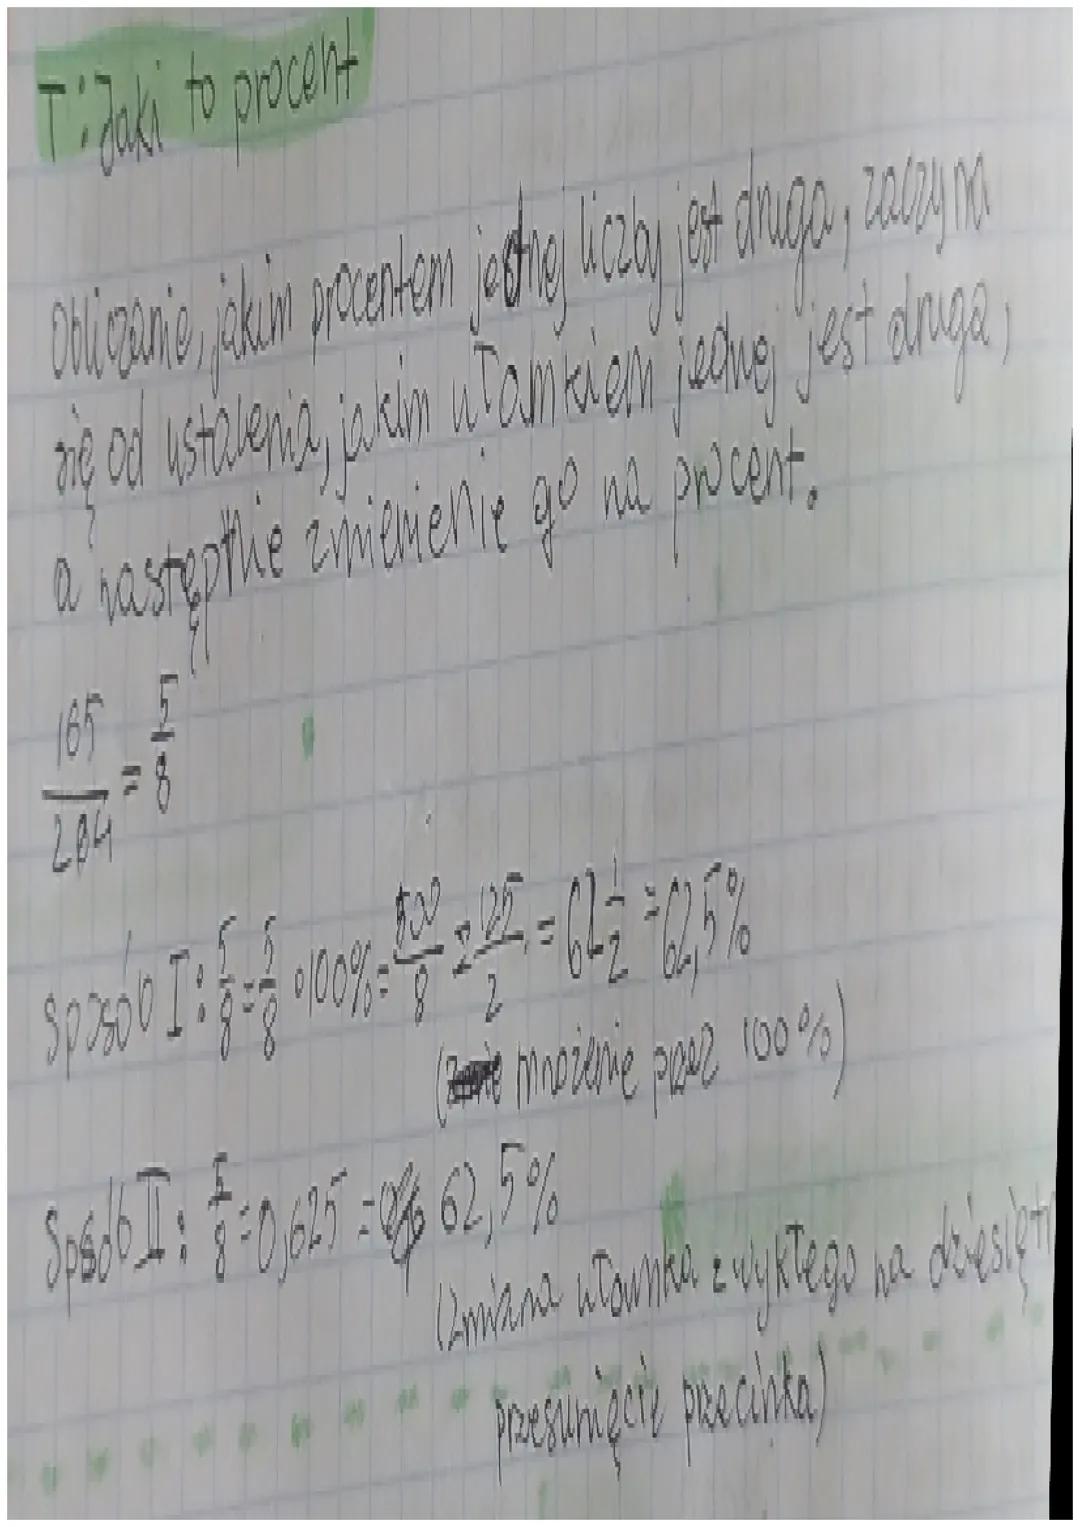 T: Jaki to procent
Obliczanie, jakim procentem jednej liczby jest druga, zaczyna
się od ustalenia, jakim ułamkiem jednej jest druga,
a następnie zmienienie go na procent.
165/204 = 5/8
Sposób I: 5/8 = 5/8 · 100% = 500/8 = 125/2 = 62 1/2 = 62,5%
(mnożenie przez 100%)
Sposób II: 5/8 = 0,625 = 62,5%
(zmiana ułamka zwykłego na dziesiętn
przesunięcie przecinka)